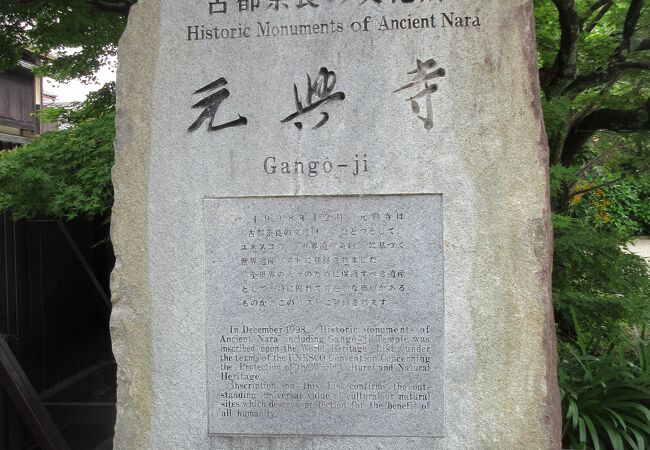 古都奈良の文化財
Historic Monuments of Ancient Nara
元興寺
Gangō-ji
1998年12月、元興寺は
「古都奈良の文化財」のひとつとして、
ユネスコの「世界遺産条約」に基づく
世界遺産リストに登録されました。
全世界の人々のために保護すべき遺産
として特に優れて普遍的な価値がある
ものがこのリストに登録されます。
In December 1998, "Historic monuments of
Ancient Nara" including Gangō-ji Temple was
inscribed upon the World Heritage List under
the terms of the UNESCO Convention Concerning
the Protection of the World Cultural and Natural
Heritage.
Inscription on this List confirms the out-
standing universal value of cultural or natural
sites which deserve protection for the benefit of
all humanity.